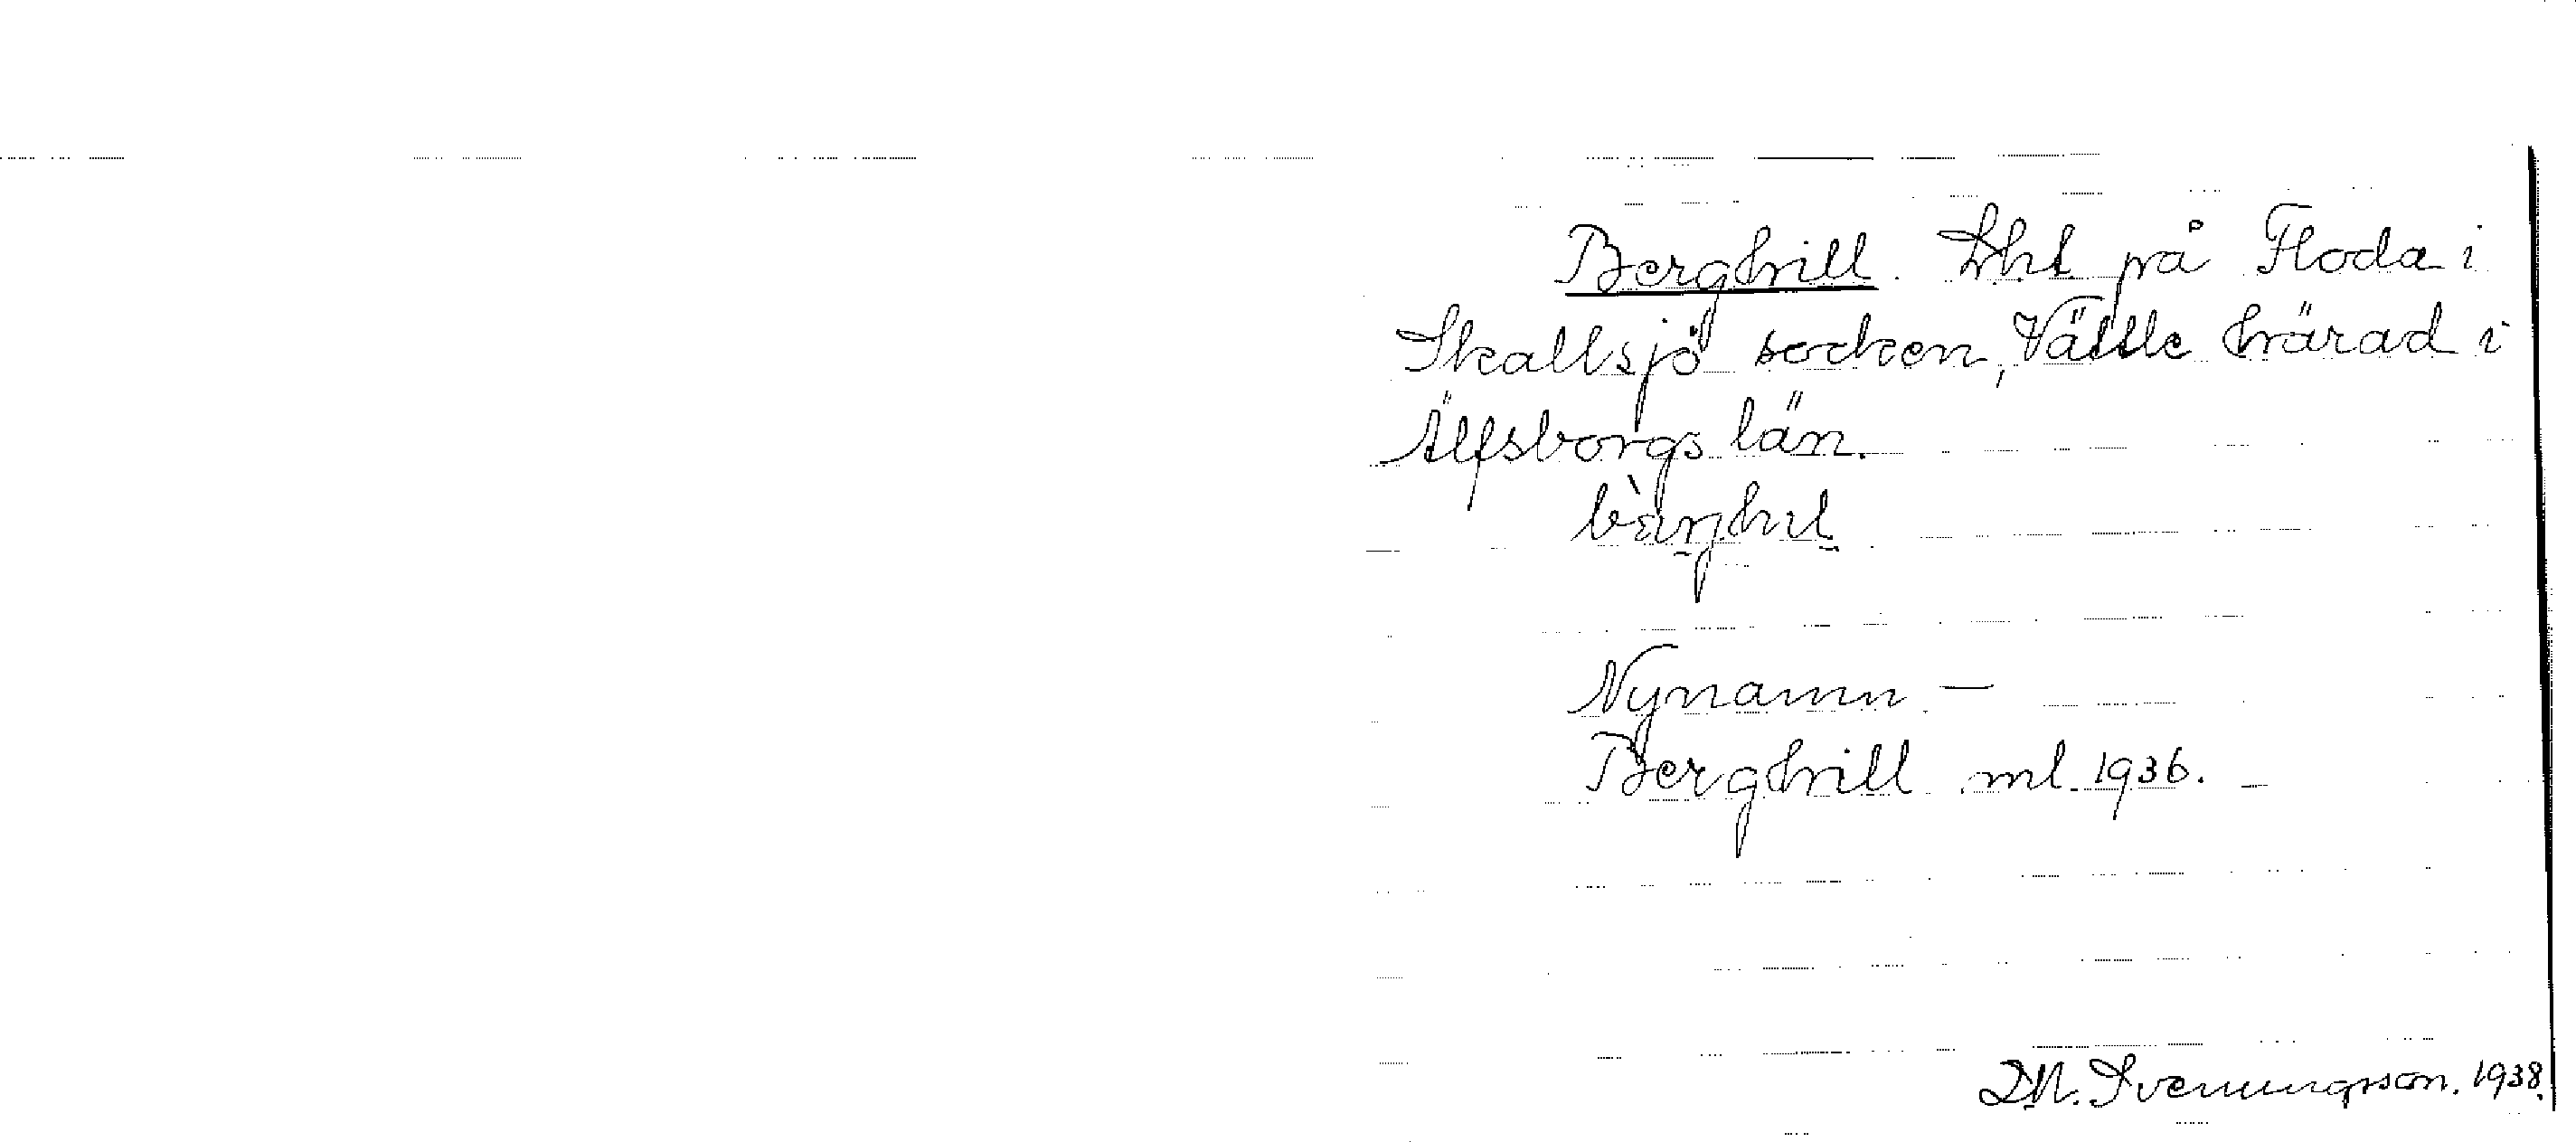 Berghill. Lht på Floda i
Skallsjö socken, Vättle härad i
Älfsborgs län.
Nynamn –
Berghill ml 1936.
D.N. Svenningsson. 1938.